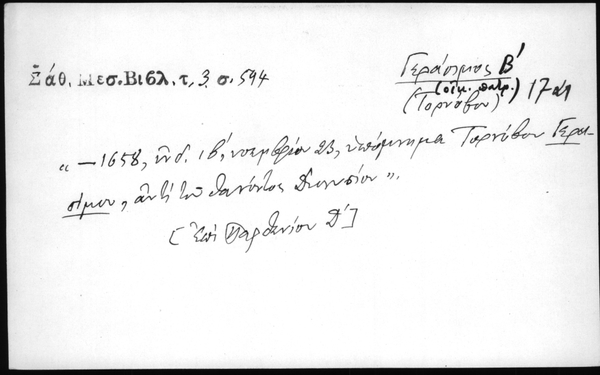 Σάθ. Μεσ. Βιβλ. τ, 3 σ. 594
Γεράσιμος Β'
(οἰκ. πατρ.)
(Τορνόβου) 17 αι
" — 1658, ἰνδ. ιβ', νοεμβρίου 23, ὑπόμνημα Τορνόβου Γερα-
σίμου, ἀντὶ τοῦ θανόντος Διονυσίου".
[Ἐπὶ Παρθενίου Δ']